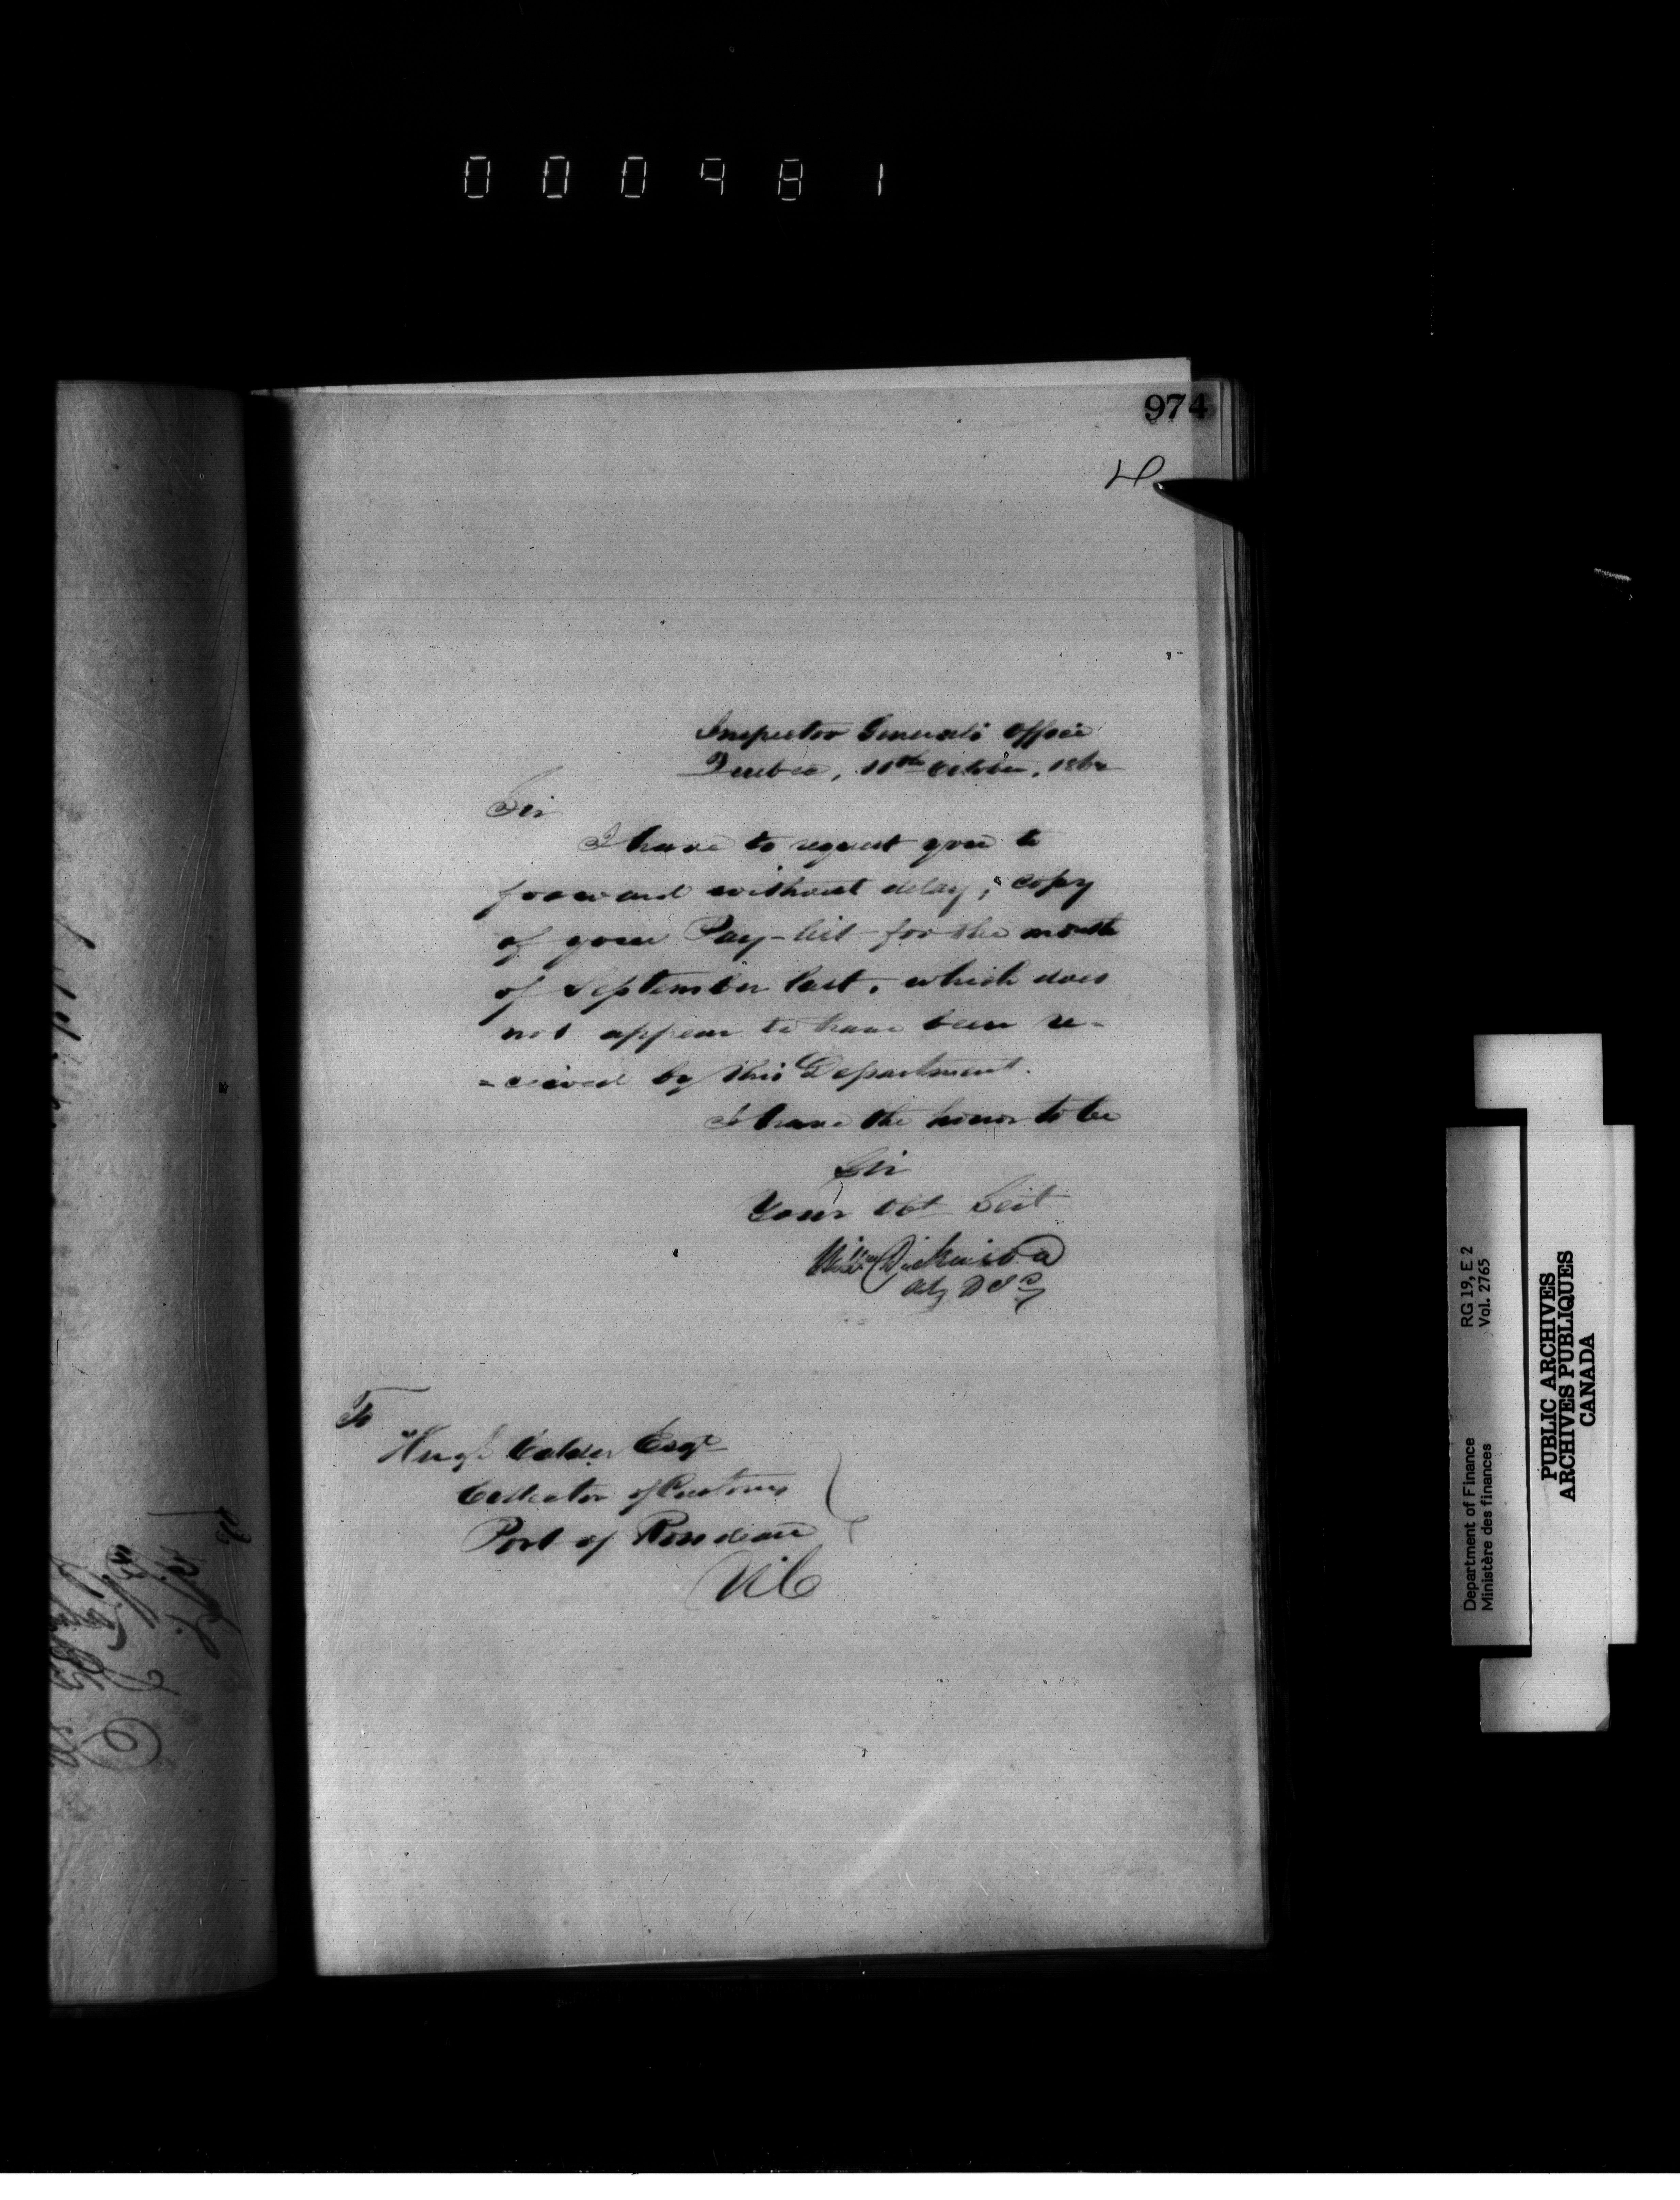 000981
974
Inspector General's Office
Quebec, 11th October, 186
Sir
I have to request you to
forward without delay, copy
of your Pay-list for the month
of September last, which does
not appear to have been re-
=ceived by this Department.
I have the honor to be
Sir
Your Obt Servt
Wm Dickinson
Actg D I G
To
Hugh Calder Esqr
Collector of Customs
Port of Rondeau
RG 19, E 2
Vol. 2765
Department of Finance
Ministère des finances
PUBLIC ARCHIVES
ARCHIVES PUBLIQUES
CANADA